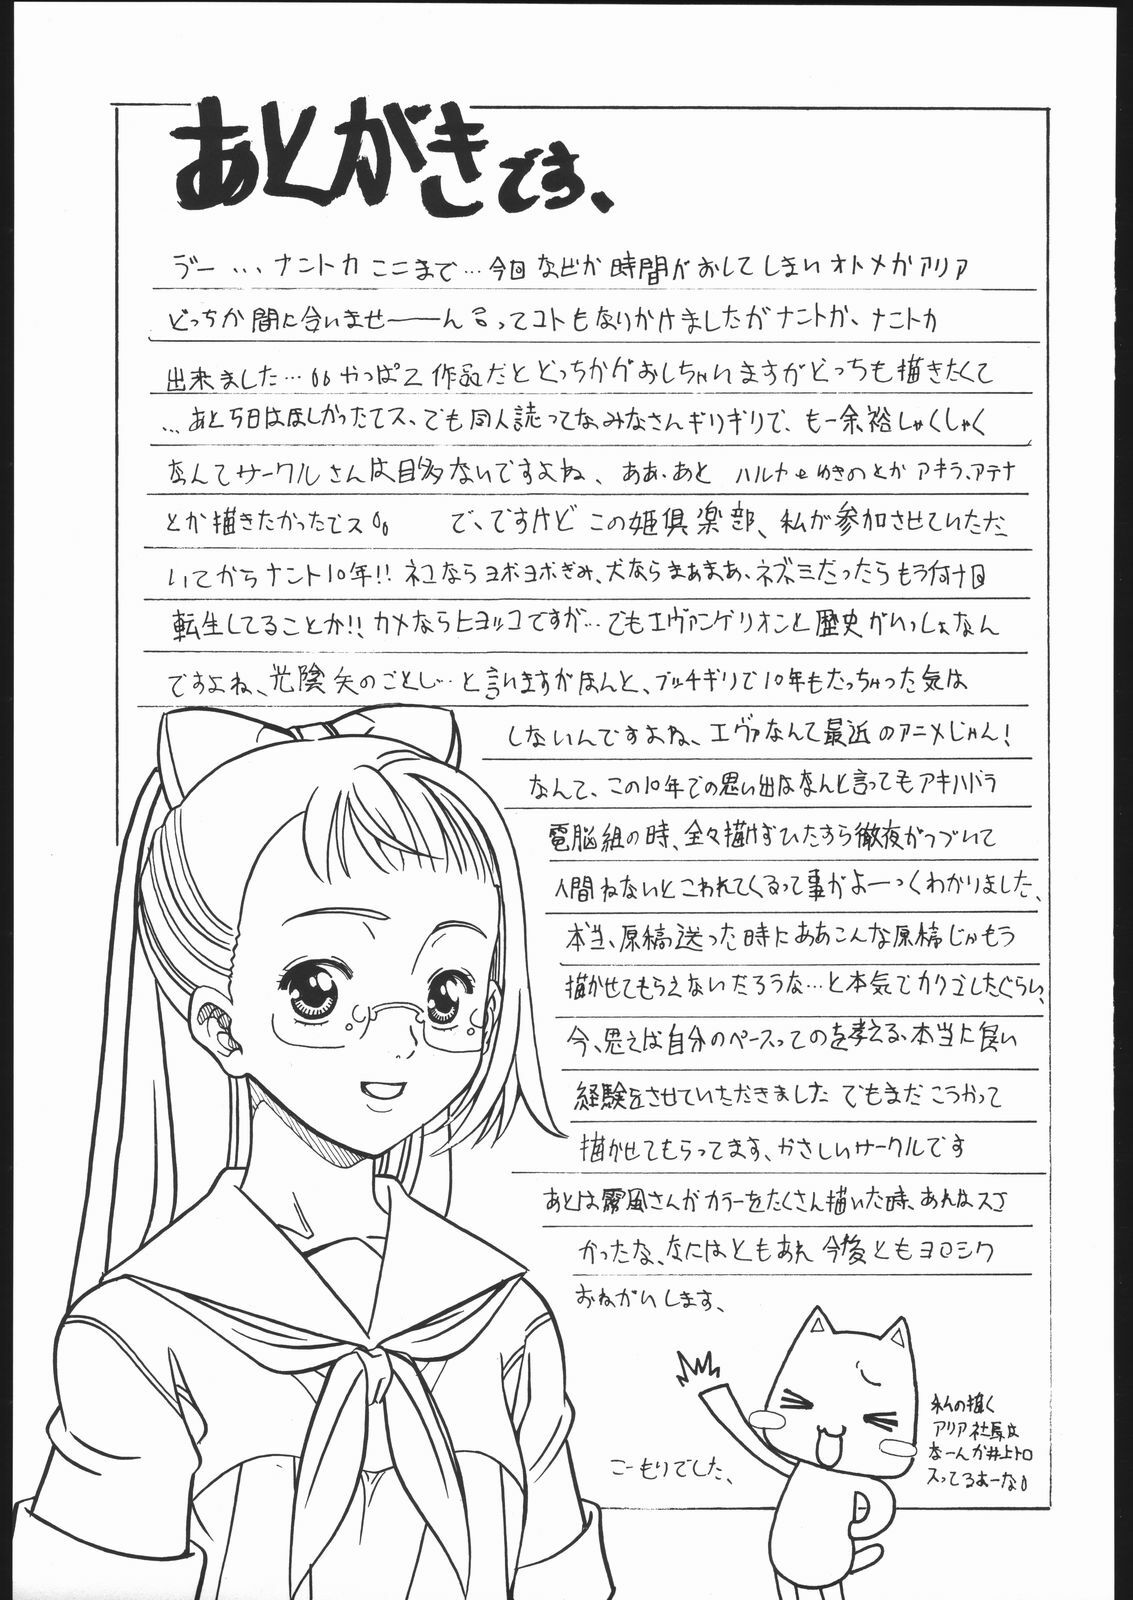 あとがきです、
えー…ナントカここまで…今回なぜか時間がおしてしまいオトメかアリア
どっちか間に合いませーーーん!ってコトもなりかけましたがナントカ、ナントカ
出来ました…。やっぱ2作品だとどっちかがおしちゃいますがどっちも描きたくて
…あと5日はほしかったでス、でも同人誌ってなみなさんギリギリで、もー余裕しゃくしゃく
なんてサークルさんは目多ないですよね、ああ、あと ハルナとゆきのとかアキラ、アテナ
とか描きたかったでス。 で、ですけどこの姫倶楽部、私が参加させていただ
いてからナント10年!!ネコならヨボヨボぎみ、犬ならまあまあ、ネズミだったらもう何十回
転生してることか!!カメならヒヨッコですが…でもエヴァンゲリオンと歴史がいっしょなん
ですよね、光陰矢のごとし…と言いますがほんと、ブッチギリで10年もたっちゃった気は
しないんですよね、エヴァなんて最近のアニメじゃん!
なんて、この10年での思い出はなんと言ってもアキハバラ
電脳組の時、全々描けずひたすら徹夜がつづいて
人間ねないとこわれてくるって事がよーっくわかりました、
本当、原稿送った時にああこんな原稿じゃもう
描かせてもらえないだろうな…と本気でカクゴしたぐらい、
今、思えば自分のペースってのを考える、本当に良い
経験をさせていただきました でもまだこうやって
描かせてもらってます、やさしいサークルです
あとは霧風さんがカラーをたくさん描いた時、あれはスゴ
かったな、なにはともあれ今後ともヨロシク
おねがいします、
こーもりでした、
私の描く
アリア社長は
なーんか井上トロ
入ってるなーな。